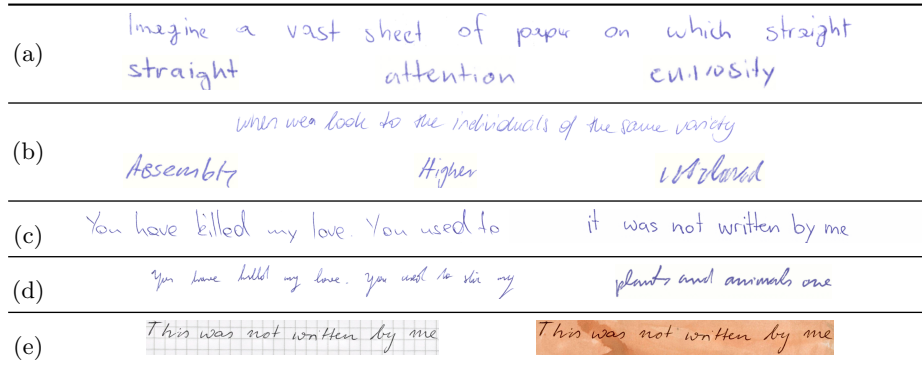 (a)
Imagine a vast sheet of paper on which straight
straight attention curiosity
(b)
when wer look to the individuals of the same variety
Assembly Higher
(c)
You have killed my love. You used to it was not written by me
(d)
You have killed my love. You used to stir my plants and animals one
(e)
This was not written by me This was not written by me